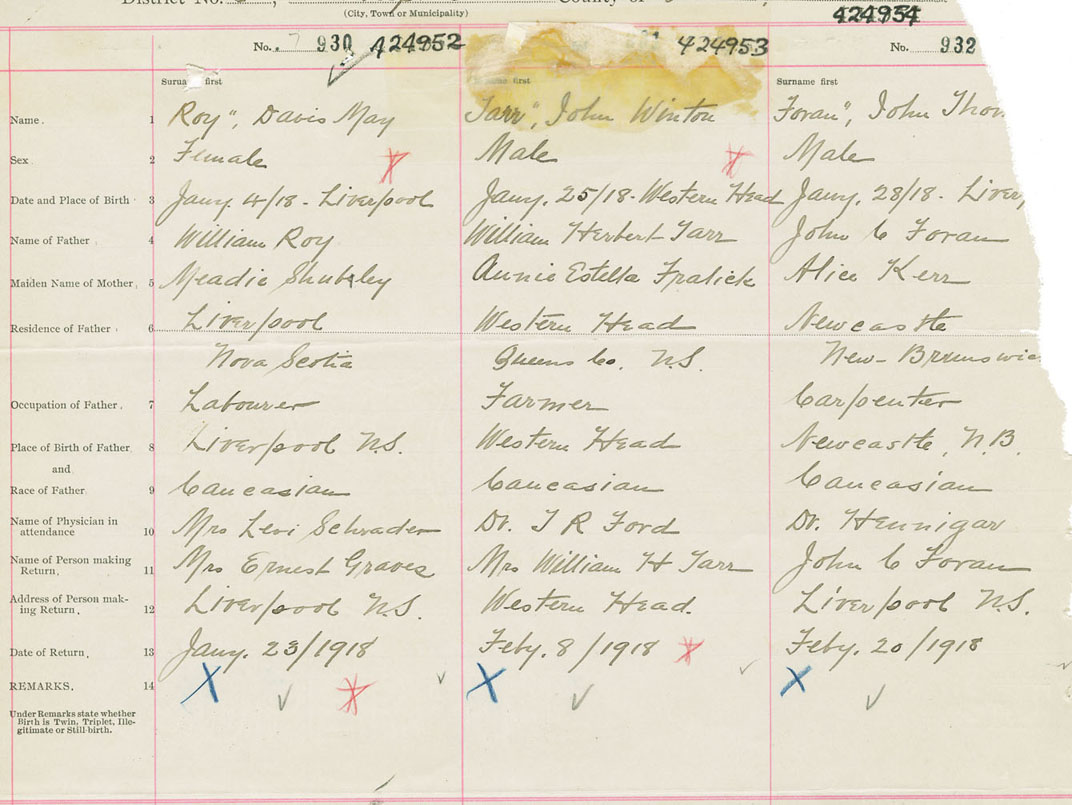 District No.
County of
(City, Town or Municipality)
424954
No. 7 930 424952
424953
No. 932
Surname first
Surname first
Surname first
Name. 1 Roy", Davis May
Tarr", John Winton
Foran", John Thom
Sex 2 Female
Male
Male
Date and Place of Birth 3 Jany. 4/18 - Liverpool
Jany. 25/18 - Western Head
Jany. 28/18 - Liver
Name of Father 4 William Roy
William Herbert Tarr
John C Foran
Maiden Name of Mother, 5 Meadie
Annie Estella Fralick
Alice Kerr
Residence of Father 6 Liverpool
Western Head
Newcastle
Nova Scotia
Queens Co. N.S.
New-Brunswic
Occupation of Father. 7 Labourer
Farmer
Carpenter
Place of Birth of Father 8 Liverpool N.S.
Western Head
Newcastle, N.B.
and
Race of Father 9 Caucasian
Caucasian
Caucasian
Name of Physician in
attendance 10 Mrs Levi Schrader
Dr. T R Ford
Dr. Hennigar
Name of Person making
Return, 11 Mrs Ernest Graves
Mrs William H Tarr
John C Foran
Address of Person mak-
ing Return, 12 Liverpool N.S.
Western Head.
Liverpool N.S.
Date of Return, 13 Jany. 23/1918
Feby. 8/1918
Feby. 20/1918
REMARKS. 14
Under Remarks state whether
Birth is Twin, Triplet, Ille-
gitimate or Still-birth.